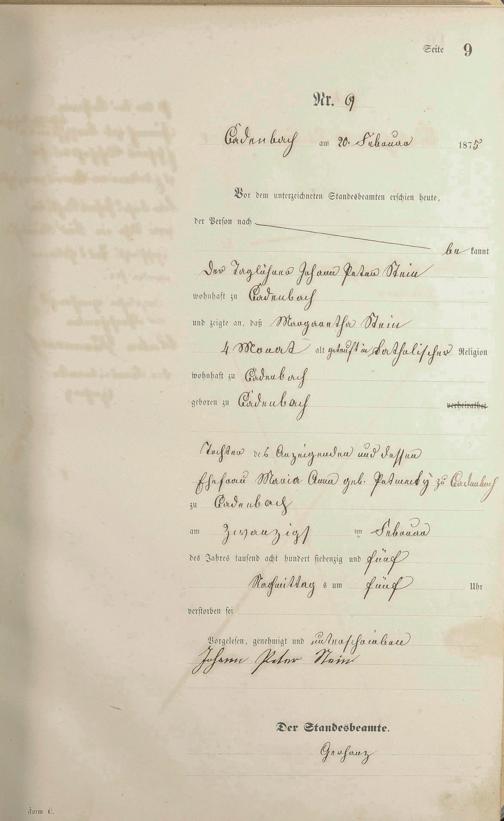 Seite 9
Nr. 9
Cadenbach am 20. Februar 1875
Vor dem unterzeichneten Standesbeamten erschien heute,
der Person nach
be kannt
der Taglöhner Johann Peter Stein
wohnhaft zu Cadenbach
und zeigte an, daß Margaretha Stein
4 Monat alt getauft in katholischer Religion
wohnhaft zu Cadenbach
geboren zu Cadenbach verheirathet
Tochter des Anzeigenden und dessen
Ehefrau Maria Anna geb. zu Cadenbach
zu Cadenbach
am Zwanzigst im Februar
des Jahres tausend acht hundert siebenzig und fünf
Nachmittag s um fünf Uhr
verstorben sei
Vorgelesen, genehmigt und unterschrieben
Johann Peter Stein
Der Standesbeamte.
Gerhanz
Form C.